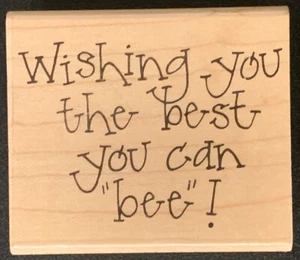 Wishing you
the best
you can
"bee"!